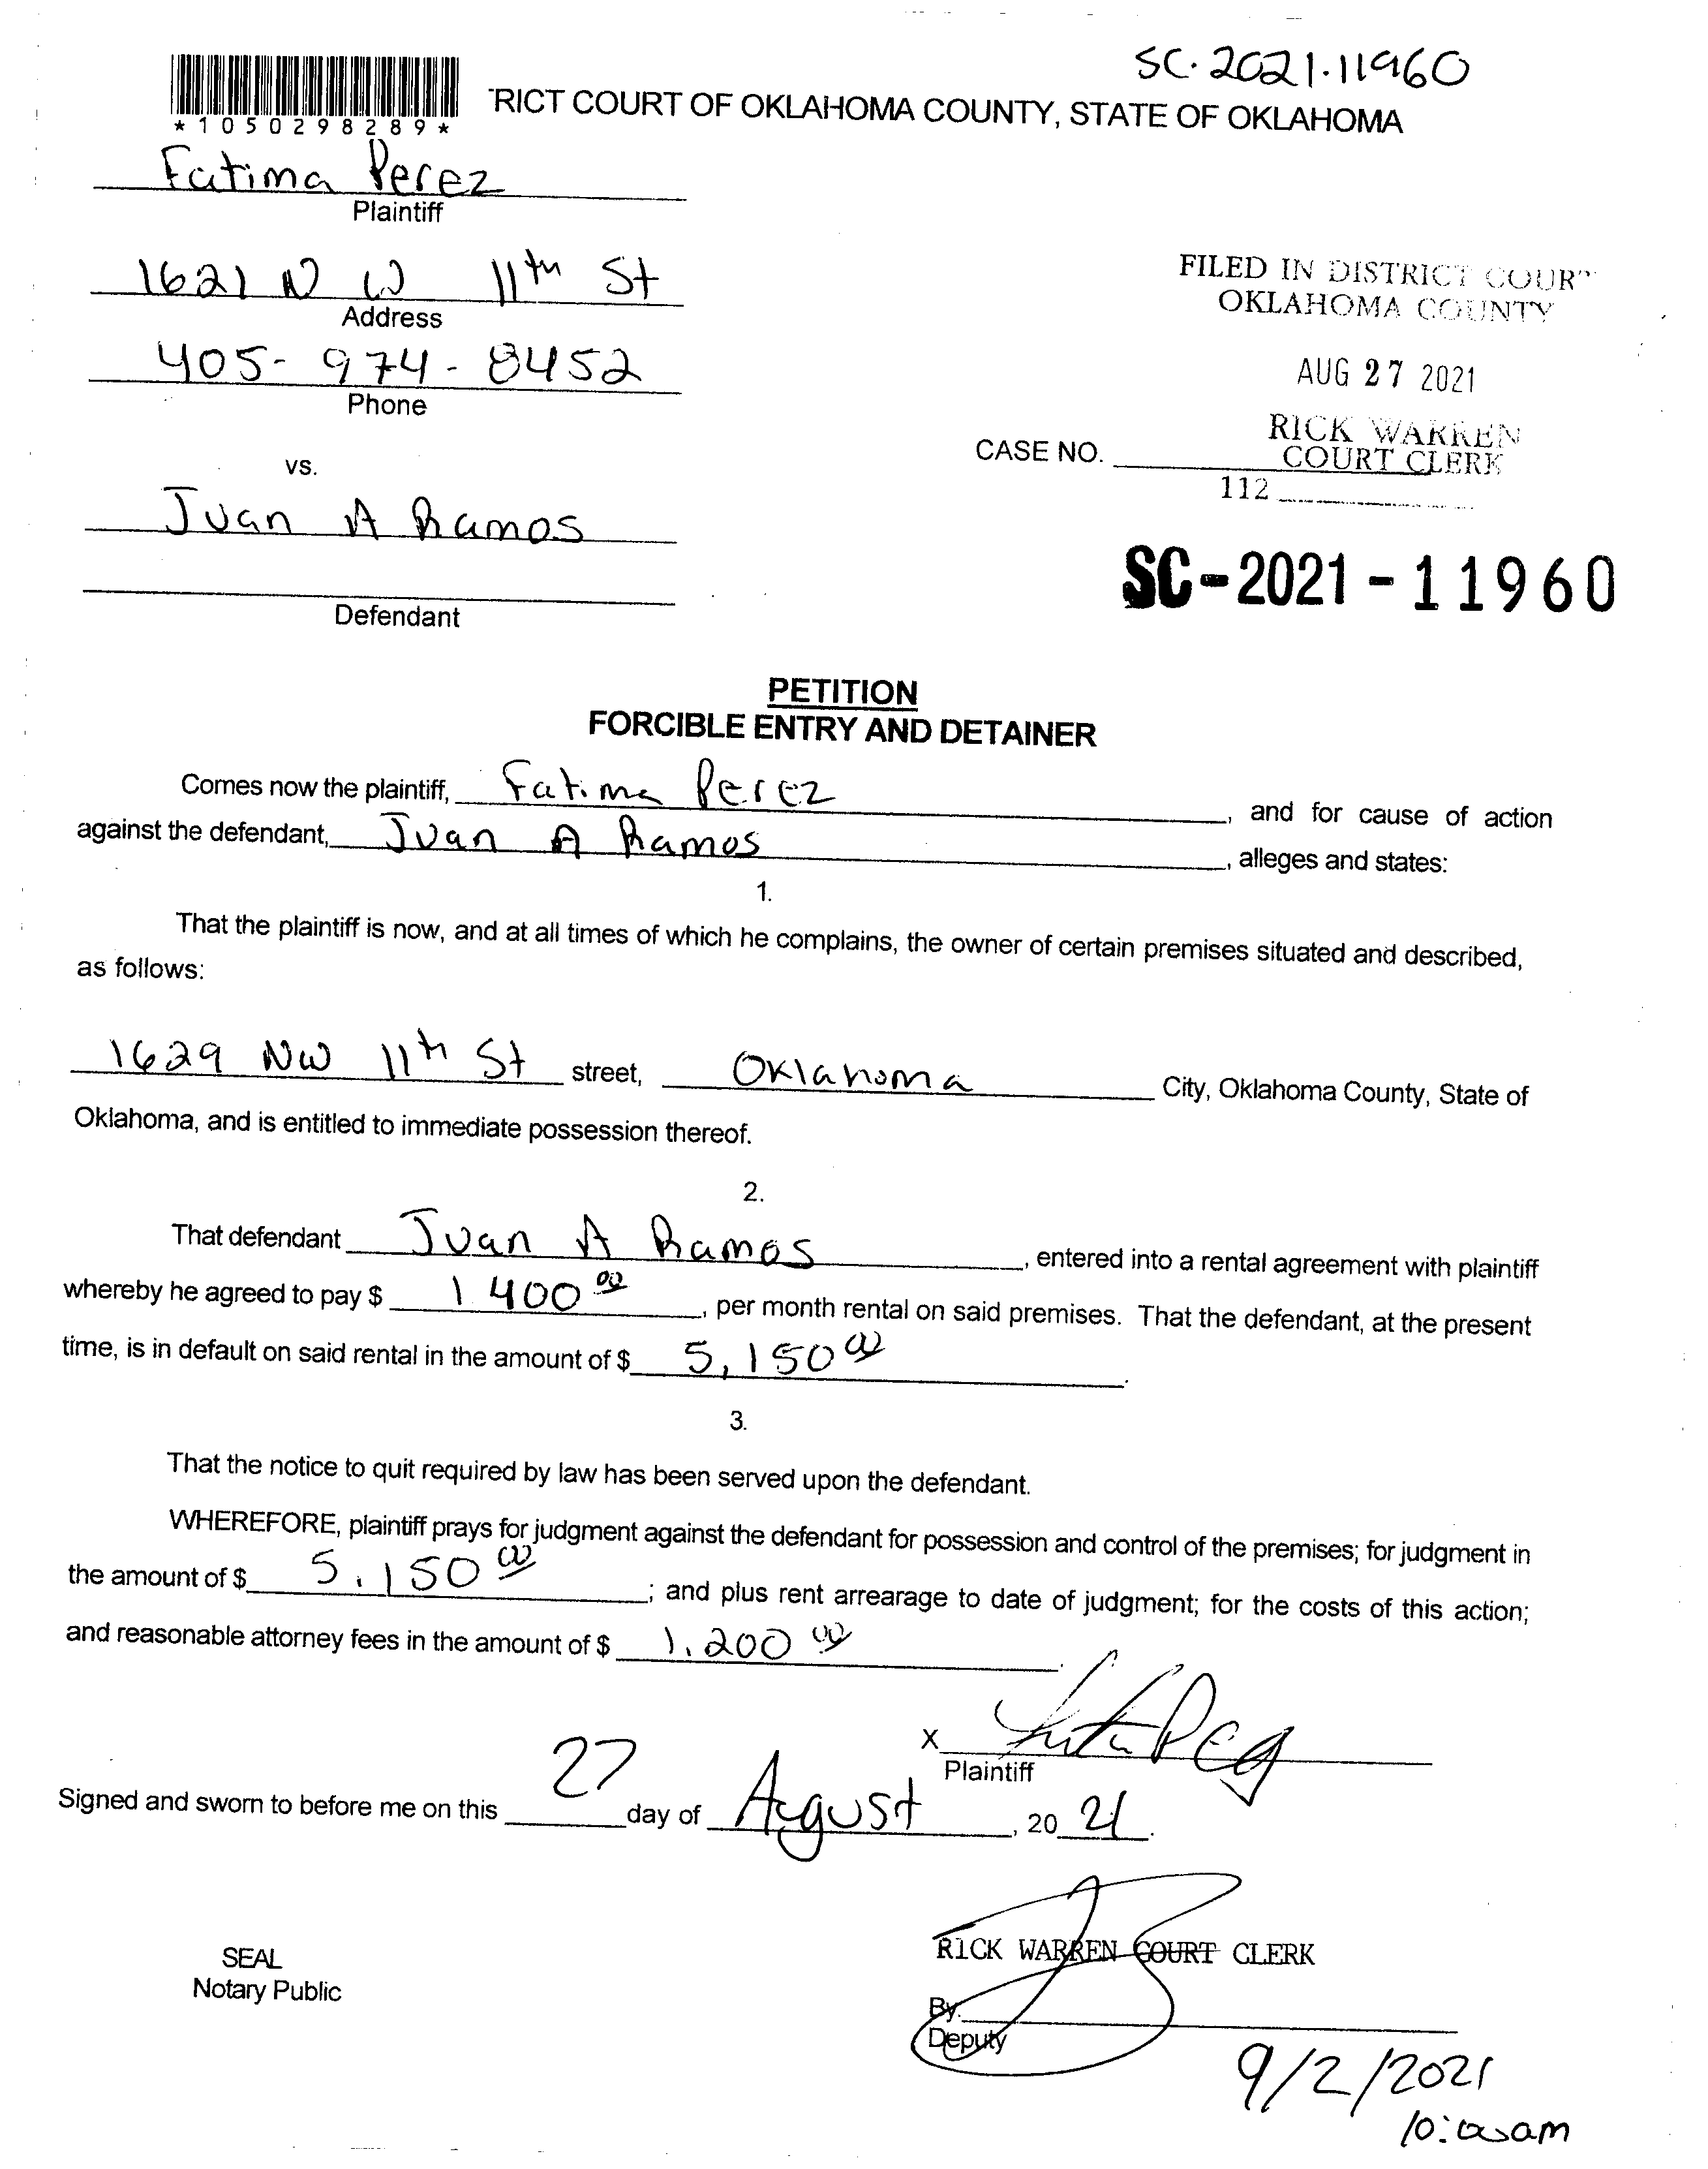 SC·2021·11960
*1050298289*
RICT COURT OF OKLAHOMA COUNTY, STATE OF OKLAHOMA
Fatima Perez
Plaintiff
1621 N W 11th St
Address
405-974-8452
Phone
FILED IN DISTRICT COUR
OKLAHOMA COUNTY
AUG 27 2021
RICK WARREN
COURT CLERK
CASE NO.
112
vs.
Juan A Ramos
Defendant
SC-2021-11960
PETITION
FORCIBLE ENTRY AND DETAINER
Comes now the plaintiff, Fatima Perez, and for cause of action
against the defendant, Juan A Ramos, alleges and states:
1.
That the plaintiff is now, and at all times of which he complains, the owner of certain premises situated and described,
as follows:
1629 NW 11th St street, Oklahoma City, Oklahoma County, State of
Oklahoma, and is entitled to immediate possession thereof.
2.
That defendant Juan A Ramos, entered into a rental agreement with plaintiff
whereby he agreed to pay $ 1400 00, per month rental on said premises. That the defendant, at the present
time, is in default on said rental in the amount of $ 5,150 00.
3.
That the notice to quit required by law has been served upon the defendant.
WHEREFORE, plaintiff prays for judgment against the defendant for possession and control of the premises; for judgment in
the amount of $ 5.150 00; and plus rent arrearage to date of judgment; for the costs of this action;
and reasonable attorney fees in the amount of $ 1.200 00.
X
Plaintiff
Signed and sworn to before me on this 27 day of August, 20 21.
RICK WARREN COURT CLERK
SEAL
Notary Public
By.
Deputy
9/2/2021
10:00am